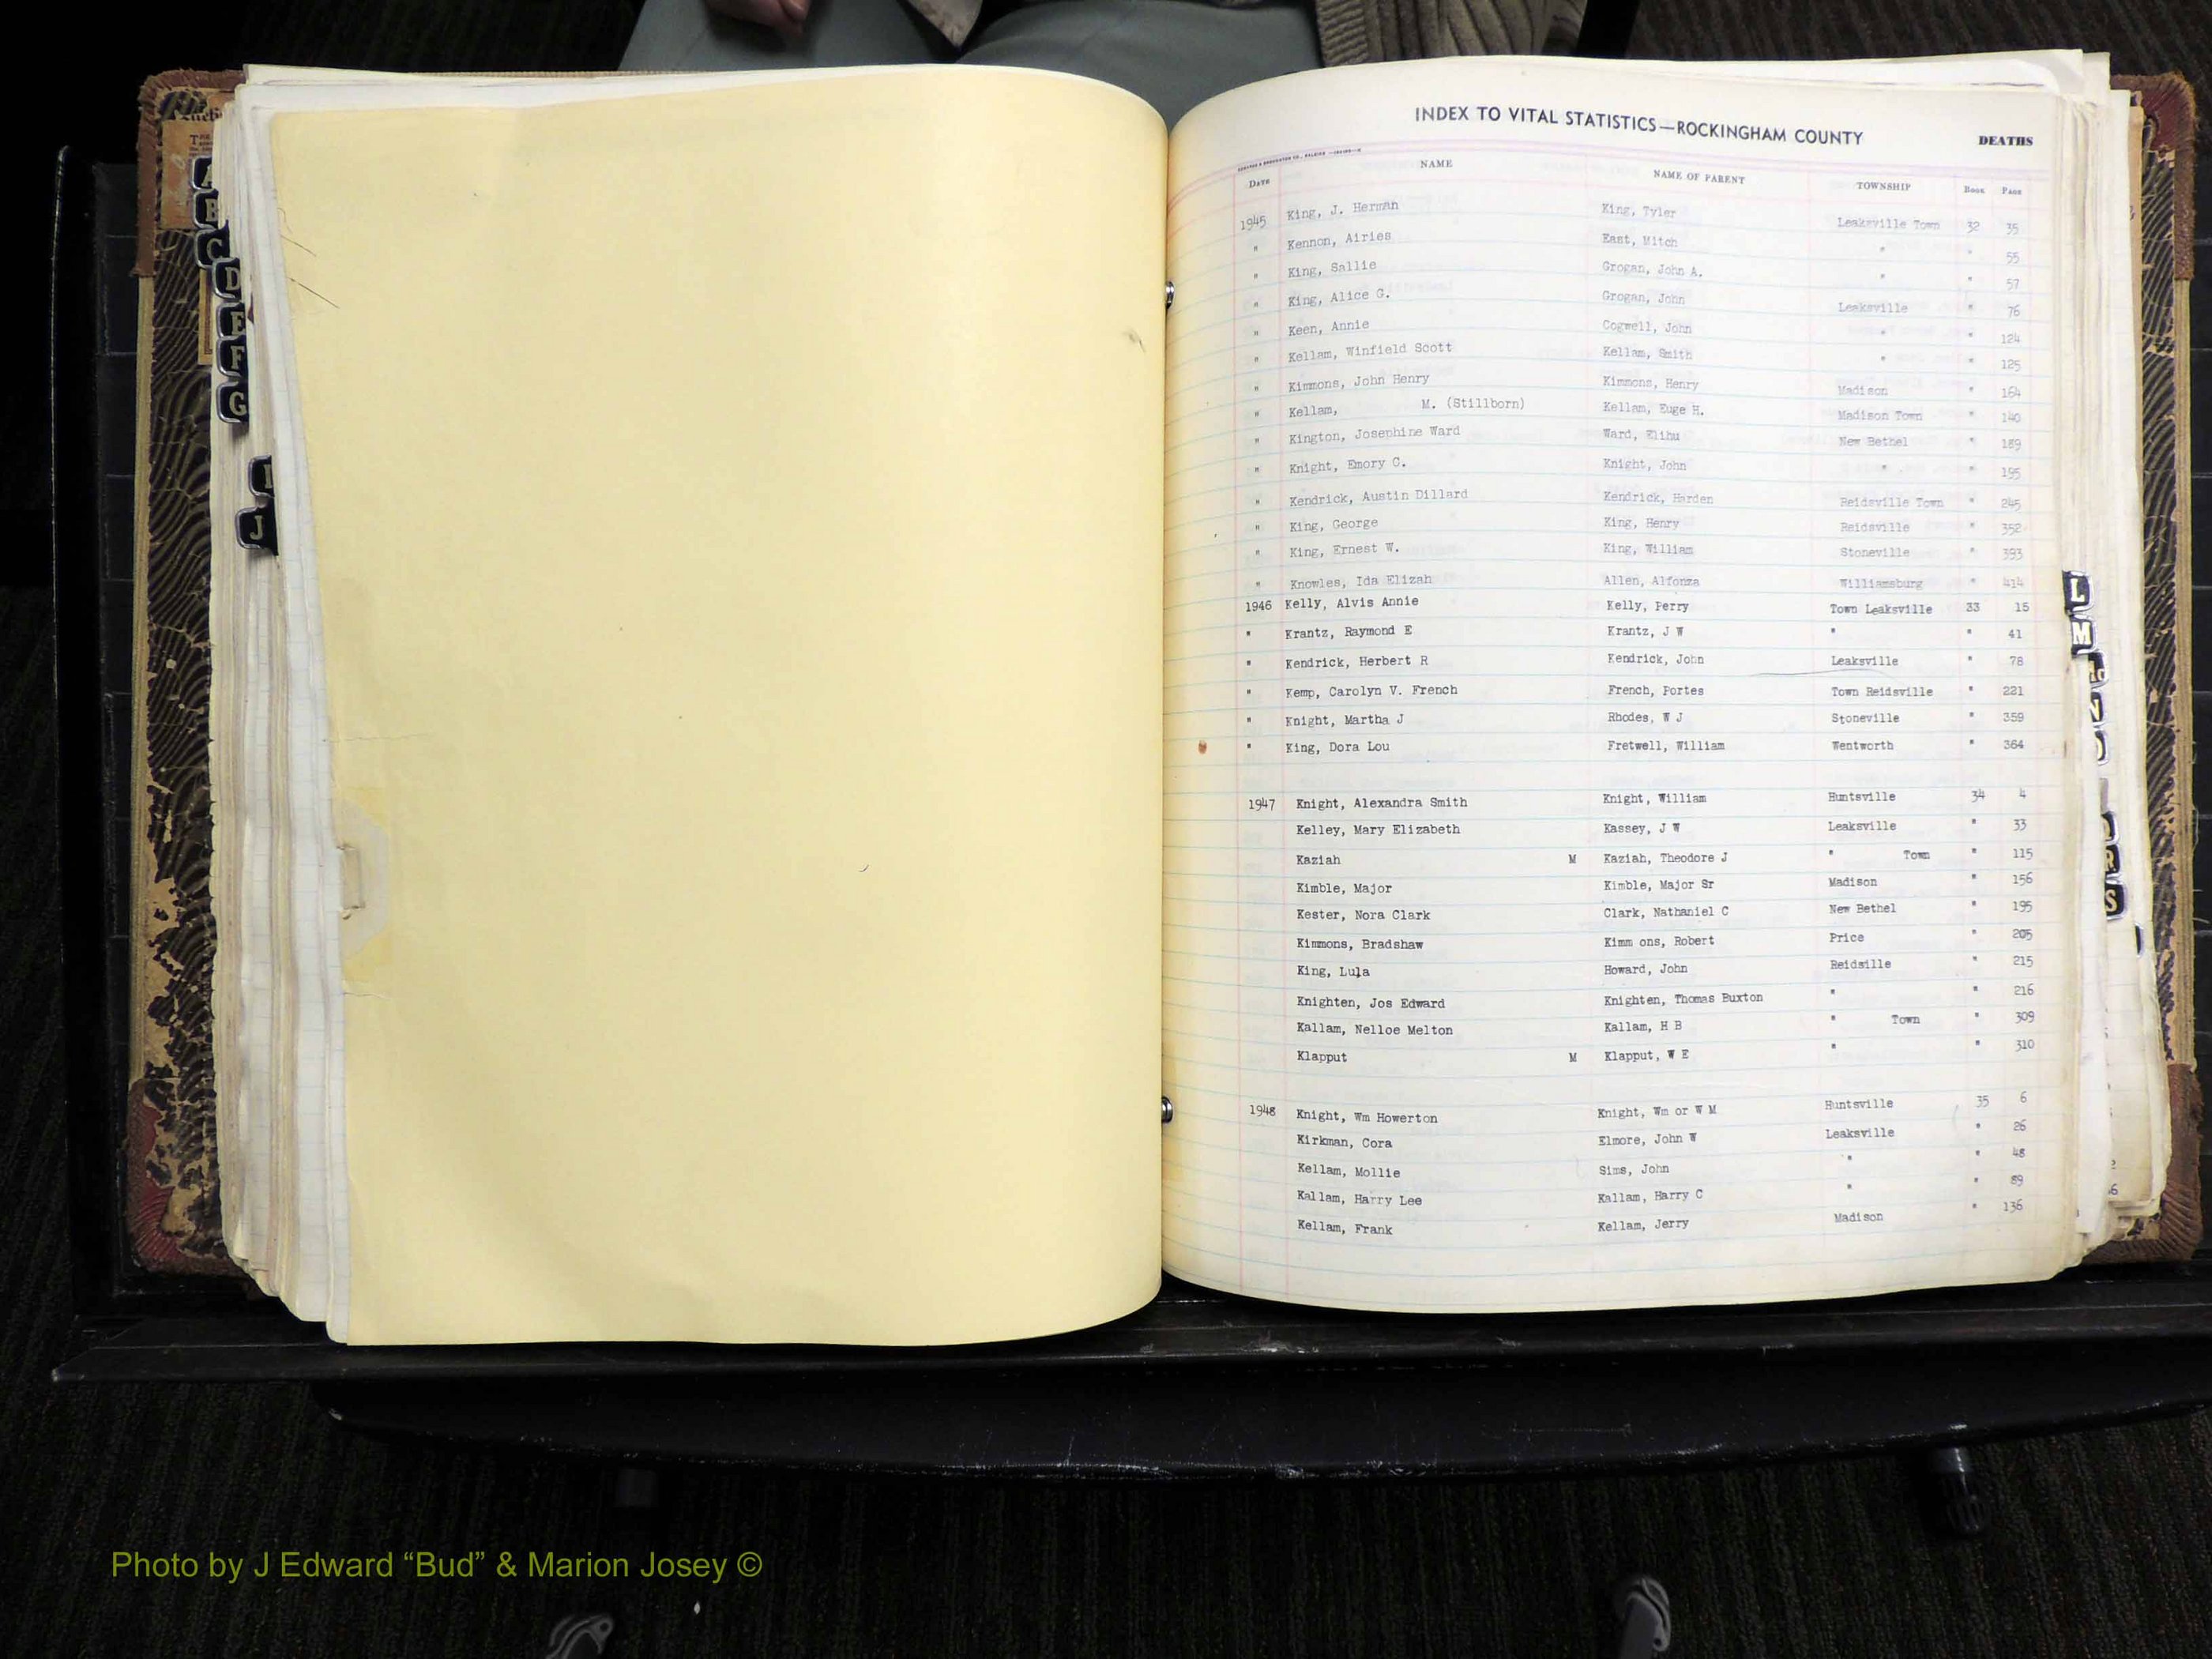 INDEX TO VITAL STATISTICS—ROCKINGHAM COUNTY
DEATHS
DATE NAME NAME OF PARENT TOWNSHIP BOOK PAGE
1945 King, J. Herman King, Tyler Leaksville Town 32 35
" Kennon, Airies East, Mitch " " 55
" King, Sallie Grogan, John A. " " 57
" King, Alice G. Grogan, John Leaksville " 76
" Keen, Annie Cogwell, John " " 124
" Kellam, Winfield Scott Kellam, Smith " " 125
" Kimmons, John Henry Kimmons, Henry Madison " 164
" Kellam, M. (Stillborn) Kellam, Euge H. Madison Town " 140
" Kington, Josephine Ward Ward, Elihu New Bethel " 189
" Knight, Emory C. Knight, John " " 195
" Kendrick, Austin Dillard Kendrick, Harden Reidsville Town " 245
" King, George King, Henry Reidsville " 352
" King, Ernest W. King, William Stoneville " 393
" Knowles, Ida Elizah Allen, Alfonza Williamsburg " 414
1946 Kelly, Alvis Annie Kelly, Perry Town Leaksville 33 15
" Krantz, Raymond E Krantz, J W " " 41
" Kendrick, Herbert R Kendrick, John Leaksville " 78
" Kemp, Carolyn V. French French, Portes Town Reidsville " 221
" Knight, Martha J Rhodes, W J Stoneville " 359
" King, Dora Lou Fretwell, William Wentworth " 364
1947 Knight, Alexandra Smith Knight, William Huntsville 34 4
Kelley, Mary Elizabeth Kassey, J W Leaksville " 33
Kaziah M Kaziah, Theodore J " Town " 115
Kimble, Major Kimble, Major Sr Madison " 156
Kester, Nora Clark Clark, Nathaniel C New Bethel " 195
Kimmons, Bradshaw Kimm ons, Robert Price " 205
King, Lula Howard, John Reidsille " 215
Knighten, Jos Edward Knighten, Thomas Buxton " " 216
Kallam, Nelloe Melton Kallam, H B " Town " 309
Klapput M Klapput, W E " " 310
1948 Knight, Wm Howerton Knight, Wm or W M Huntsville 35 6
Kirkman, Cora Elmore, John W Leaksville " 26
Kellam, Mollie Sims, John " " 48
Kallam, Harry Lee Kallam, Harry C " " 89
Kellam, Frank Kellam, Jerry Madison " 136
A
B
C
D
E
F
G
J
L
M
R
S
Photo by J Edward “Bud” & Marion Josey ©